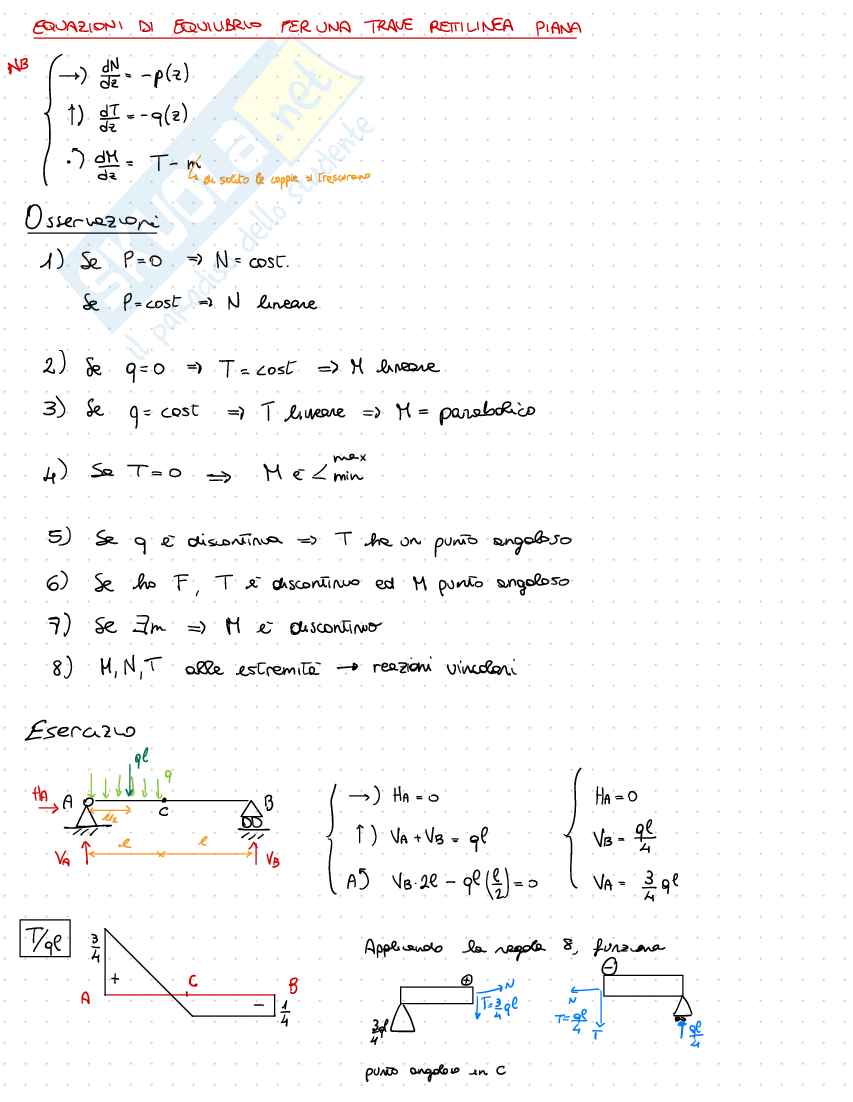 EQUAZIONI DI EQUILIBRIO PER UNA TRAVE RETTILINEA PIANA
NB
→) dN/dz = -p(z)
↑) dT/dz = -q(z)
↺) dM/dz = T - m
di solito le coppie si trascurano
Osservazioni
1) Se P=0 ⇒ N = cost.
Se P=cost ⇒ N lineare
2) Se q=0 ⇒ T=cost ⇒ M lineare
3) Se q=cost ⇒ T lineare ⇒ M = parabolico
4) Se T=0 ⇒ M è < max min
5) Se q è discontinua ⇒ T ha un punto angoloso
6) Se ho F, T è discontinuo ed M punto angoloso
7) Se ∃m ⇒ M è discontinuo
8) M, N, T alle estremità → reazioni vincolari
Esercizio
ql
q
HA A C B
l/2
VA l l VB
→) HA = 0
↑) VA + VB = ql
A↺) VB·2l - ql(l/2) = 0
HA = 0
VB = ql/4
VA = 3/4 ql
T/ql
3/4 + A C B - 1/4
Applicando la regola 8, funziona
+ N T=3/4 ql
3/4 ql
- N T=ql/4 T ql/4
punto angoloso in C
SKUOLA.net
il paradiso dello studente